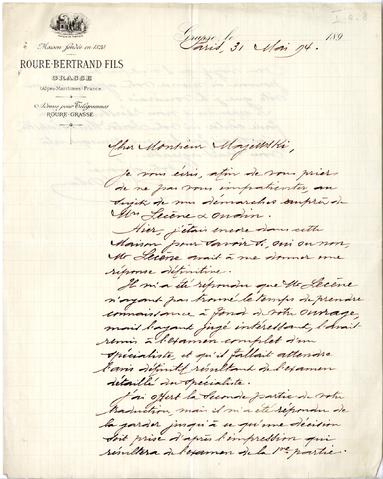 I. a. 8
Grasse, le 189
Paris, 31 Mai 94.
Maison fondée en 1820
ROURE-BERTRAND FILS
GRASSE
(Alpes-Maritimes) France
Adresse pour Télégrammes
ROURE-GRASSE
Cher Monsieur Majewski,
Je vous écris, afin de vous prier
de ne pas vous impatienter au
sujet de mes démarches auprès de
Mrs Lecène & Oudin.
Hier, j'étais encore dans cette
Maison pour savoir si, oui ou non,
Mr Lecène avait à me donner une
réponse définitive.
Il m'a été répondu que Mr Lecène
n'ayant pas trouvé le temps de prendre
connaissance à fond de votre ouvrage,
mais l'ayant jugé intéressant, l'avait
remis à l'examen complet d'un
spécialiste, et qu'il fallait attendre
l'avis définitif résultant de l'examen
détaillé du spécialiste.
J'ai offert la seconde partie de votre
traduction, mais il m'a été répondu de
la garder jusqu'à ce qu'une décision
soit prise d'après l'impression qui
résultera de l'examen de la 1re partie.